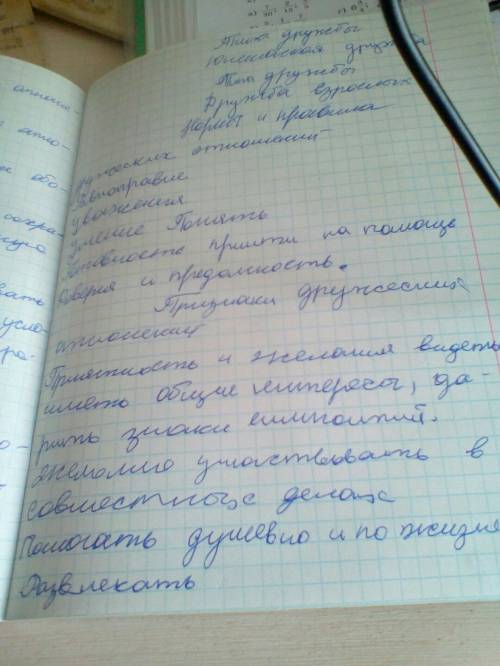 аппозо-
Типы дружбы
Юношеская дружба
Типы дружбы
Дружба взрослых
Нормы и правила
дружеских отношений
Равноправие
уважения
умение Понять
Готовность прийти на помощь
Доверия и преданность.
Признаки дружеских
отношений
Приятность и желания видеть
иметь общие интересы, да-
рить знаки симпатий.
желание участвовать в
совместных делах
Помогать душевно и по жизни
Развлекать